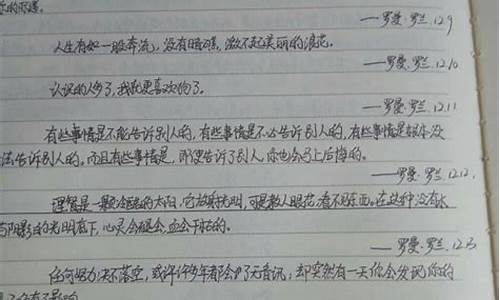 的阴霾。
——罗曼·罗兰.12.9
人生有如一股奔流，没有暗礁，激不起美丽的浪花。
——罗曼·罗兰.12.10
认识的人多了，我就更喜欢狗了。
——罗曼·罗兰.12.11
有些事情是不能告诉别人的，有些事情是不必告诉别人的，有些事情是根本没
法告诉别人的，而且有些事情是，即使告诉了别人，你也会马上后悔的。
——罗曼·罗兰.12.12.
理智是一颗冷酷的太阳，它放射光明，可是教人眼花，看不见东西。在这种没有水
与阴影的光明底下，心灵会褪色，血会干枯的。
——罗曼·罗兰.12.13
任何努力决不落空，或许许多年都会了无音讯；却突然有一天你会发现你的
有了影响